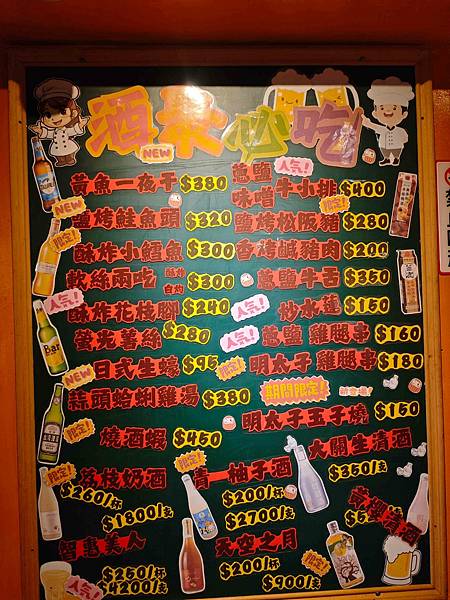 酒菜必吃
NEW
黃魚一夜干 $380
人氣!
蔥鹽
味噌 牛小排 $400
NEW
鹽烤鮭魚頭 $320
限定!
鹽烤松阪豬 $280
限定!
酥炸小鱈魚 $300
香烤鹹豬肉 $200
軟絲兩吃 酥炸 白灼 $300
蔥鹽牛舌 $350
人氣!
酥炸花枝腳 $240
人氣!
炒水蓮 $150
薯絲 $280
人氣!
蔥鹽 雞腿串 $160
NEW
日式生蠔 $95
限定!
明太子 雞腿串 $180
蒜頭蛤蜊雞湯 $380
期間限定!
明太子玉子燒 $150
限定!
燒酒蝦 $450
大關生清酒
$350/支
限定!
荔枝奶酒
$260/杯
$1800/支
限定!
青一柚子酒
$200/杯
$2700/支
清酒
智惠美人
$250/杯
$4200/支
人氣!
天空之月
$200/杯
$900/支
限定!
Bar